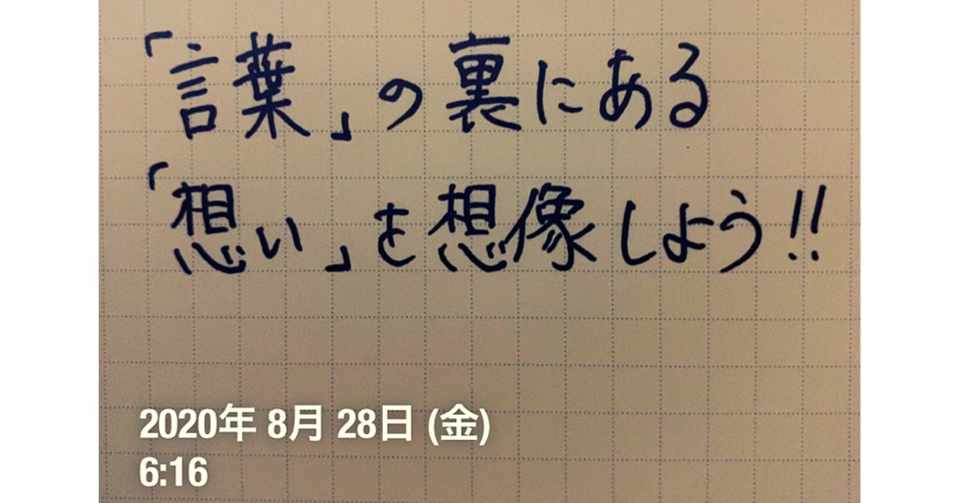 「言葉」の裏にある
「想い」を想像しよう!!
2020年 8月 28日 (金)
6:16